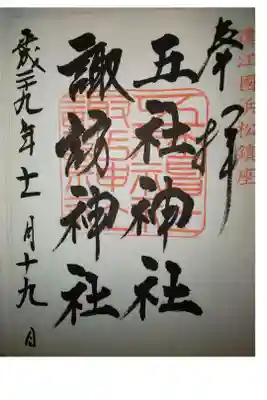 遠江國浜松鎮座
奉拝
五社神社
諏訪神社
平成二九年十一月十九日